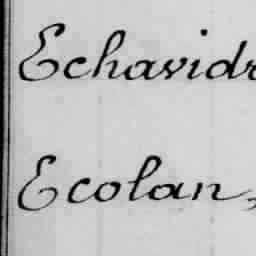 Echavidr
Ecolan,